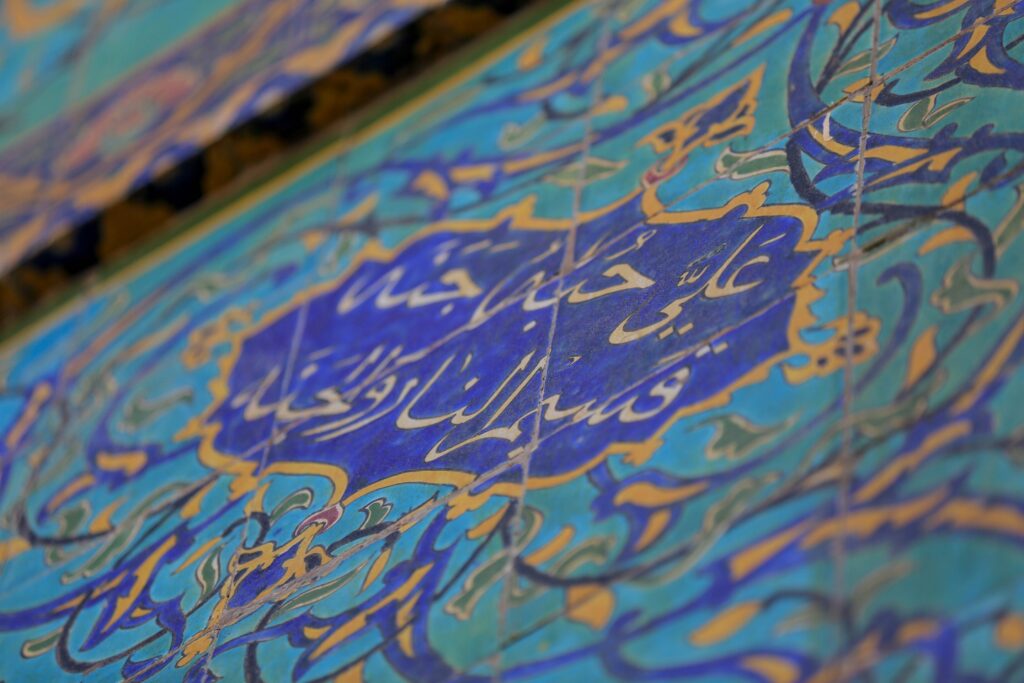 عَلِيٌّ حُبُّهُ جُنَّه
قَسیمُ النارِ وَالجَنَّه